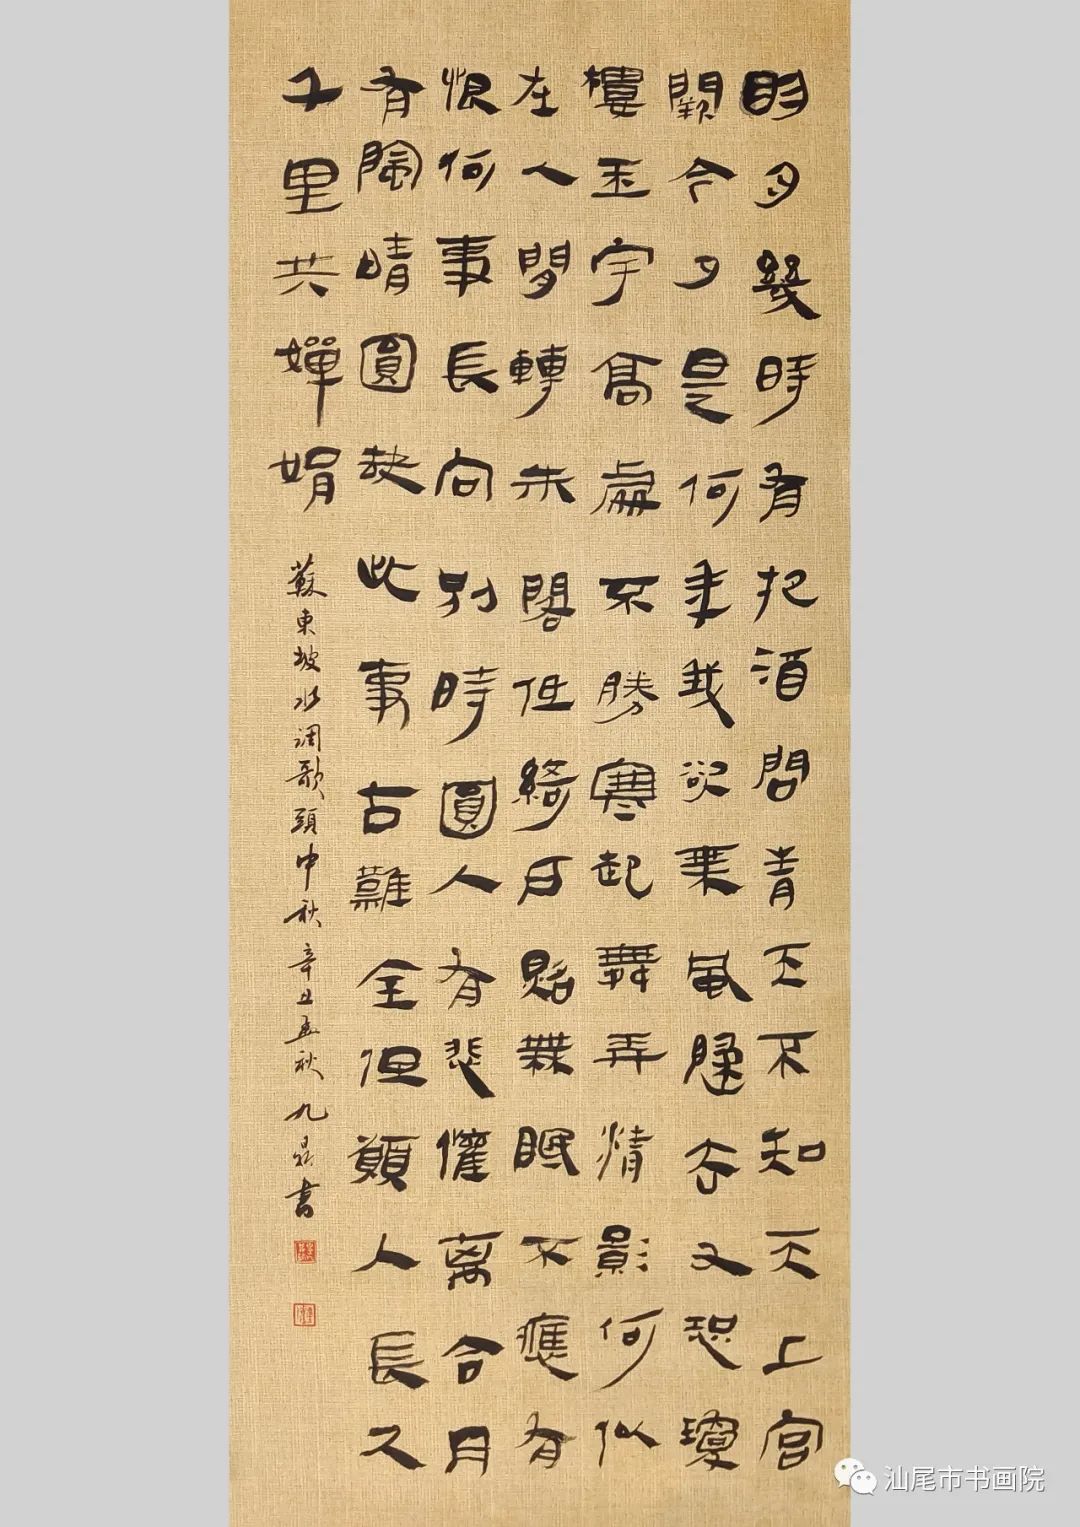 明月幾時有把酒問青天不知天上宮
闕今夕是何年我欲乘風歸去又恐瓊
樓玉宇高處不勝寒起舞弄清影何似
在人間轉朱閣低綺戶照無眠不應有
恨何事長向別時圓人有悲懽离合月
有陰晴圓缺此事古難全但願人長久
千里共嬋娟
蘇東坡水调歌頭中秋辛丑孟秋九書
汕尾市书画院